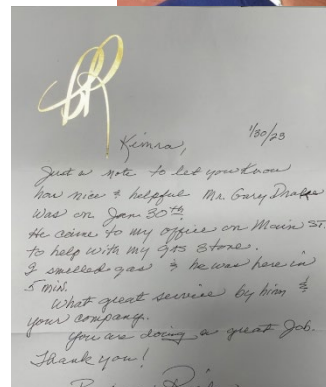 1/30/23
Kimra,
Just a note to let you know
how nice & helpful Mr. Gary
was on Jan 30th
He came to my office on Main ST.
to help with my gas stove.
I smelled gas & he was here in
5 min.
What great service by him &
your company.
You are doing a great Job.
Thank you!